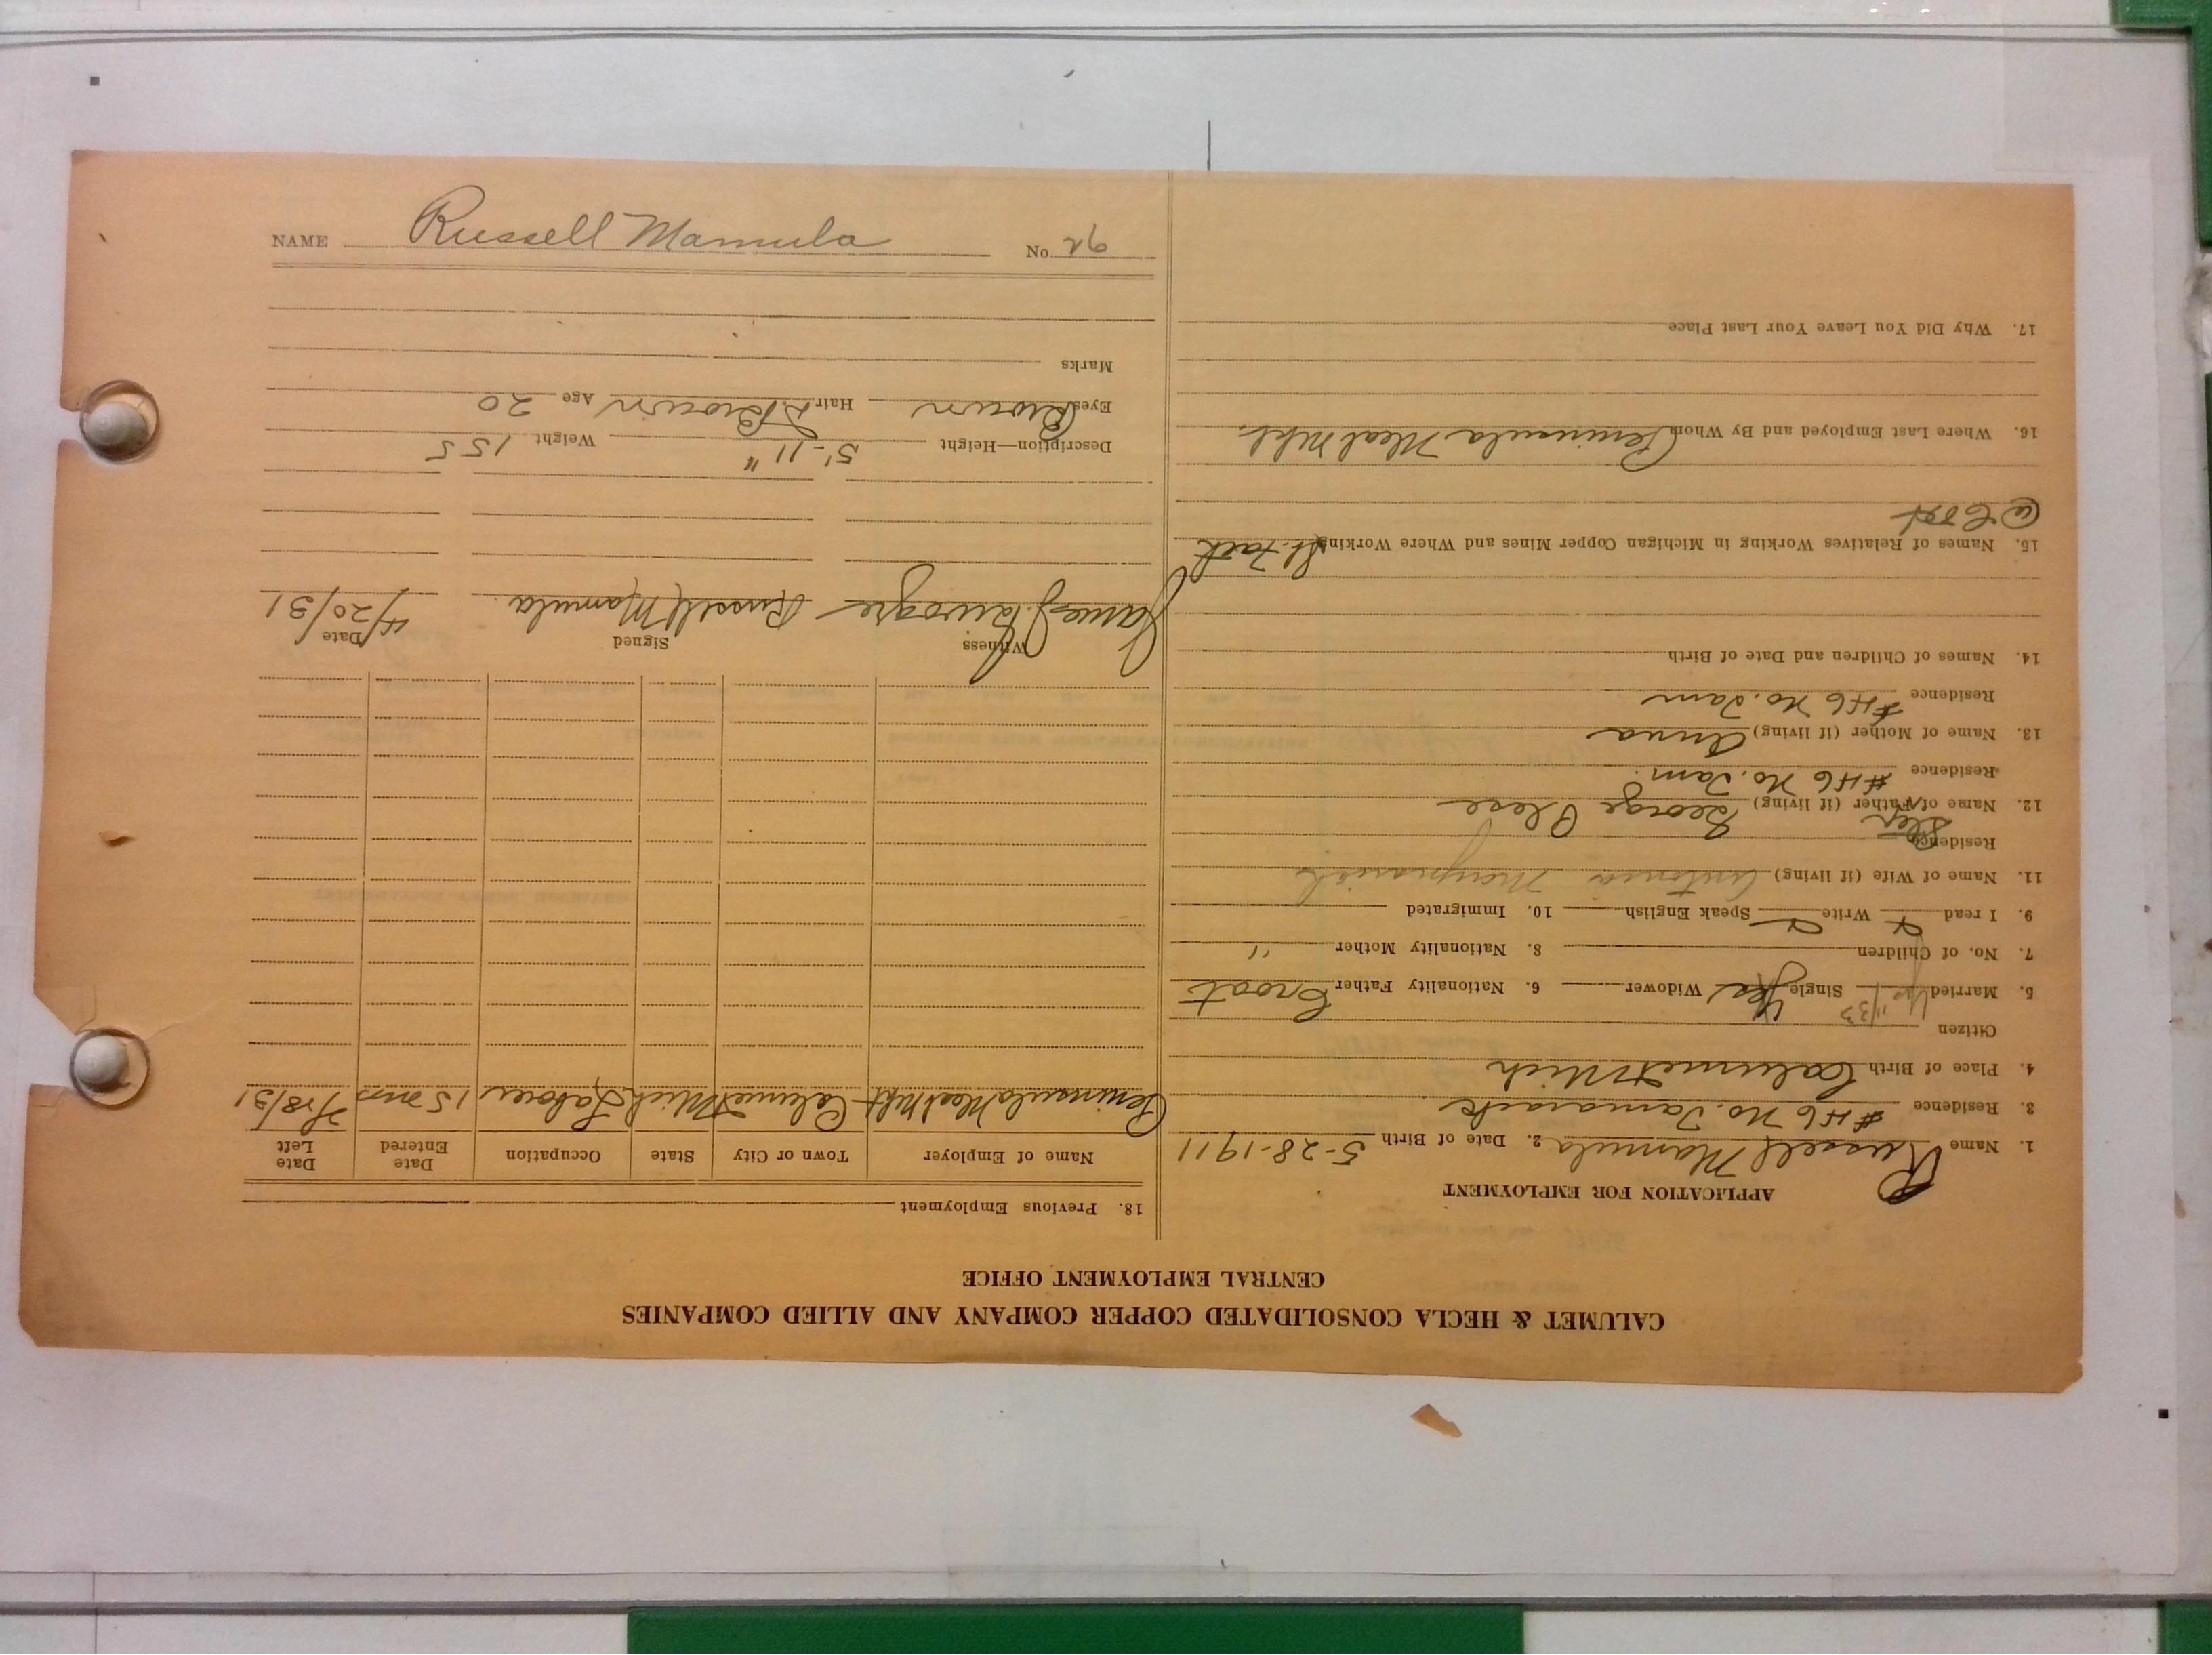 NAME Russell Mamula No. 92
CALUMET & HECLA CONSOLIDATED COPPER COMPANY AND ALLIED COMPANIES
CENTRAL EMPLOYMENT OFFICE
APPLICATION FOR EMPLOYMENT
1. Name Russell Mamula 2. Date of Birth 5-28-1911
3. Residence #46 No. Tamarack
4. Place of Birth Calumet Mich
Citizen
5. Married Yes 11/33 Single Yes Widower 6. Nationality Father Croat
7. No. of Children 8. Nationality Mother "
9. I read Write Speak English 10. Immigrated
11. Name of Wife (if living) Antonia
Residence
12. Name of Step Father (if living) George
Residence #46 No. Tam.
13. Name of Mother (if living) Anna
Residence #46 No. Tam
14. Names of Children and Date of Birth
15. Names of Relatives Working in Michigan Copper Mines and Where Working
16. Where Last Employed and By Whom Peninsula Meal Mkt.
17. Why Did You Leave Your Last Place
18. Previous Employment
Name of Employer Town or City State Occupation Date Entered Date Left
Peninsula Meat Mkt Calumet Mich Laborer 15 mos /18/31
Witness Signed Date
James Russell Mamula 4/20/31
Description—Height 5'-11" Weight 155
Eyes Brown Hair D. Brown Age 20
Marks